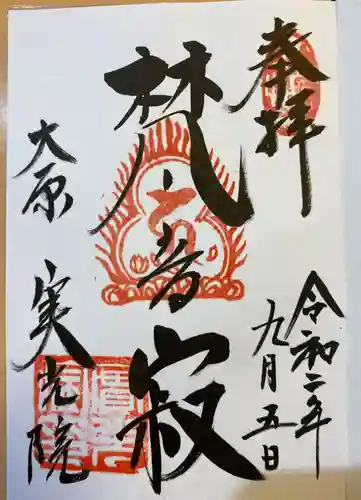 奉拝
令和二年
九月五日
梵音寂
大原
実光院